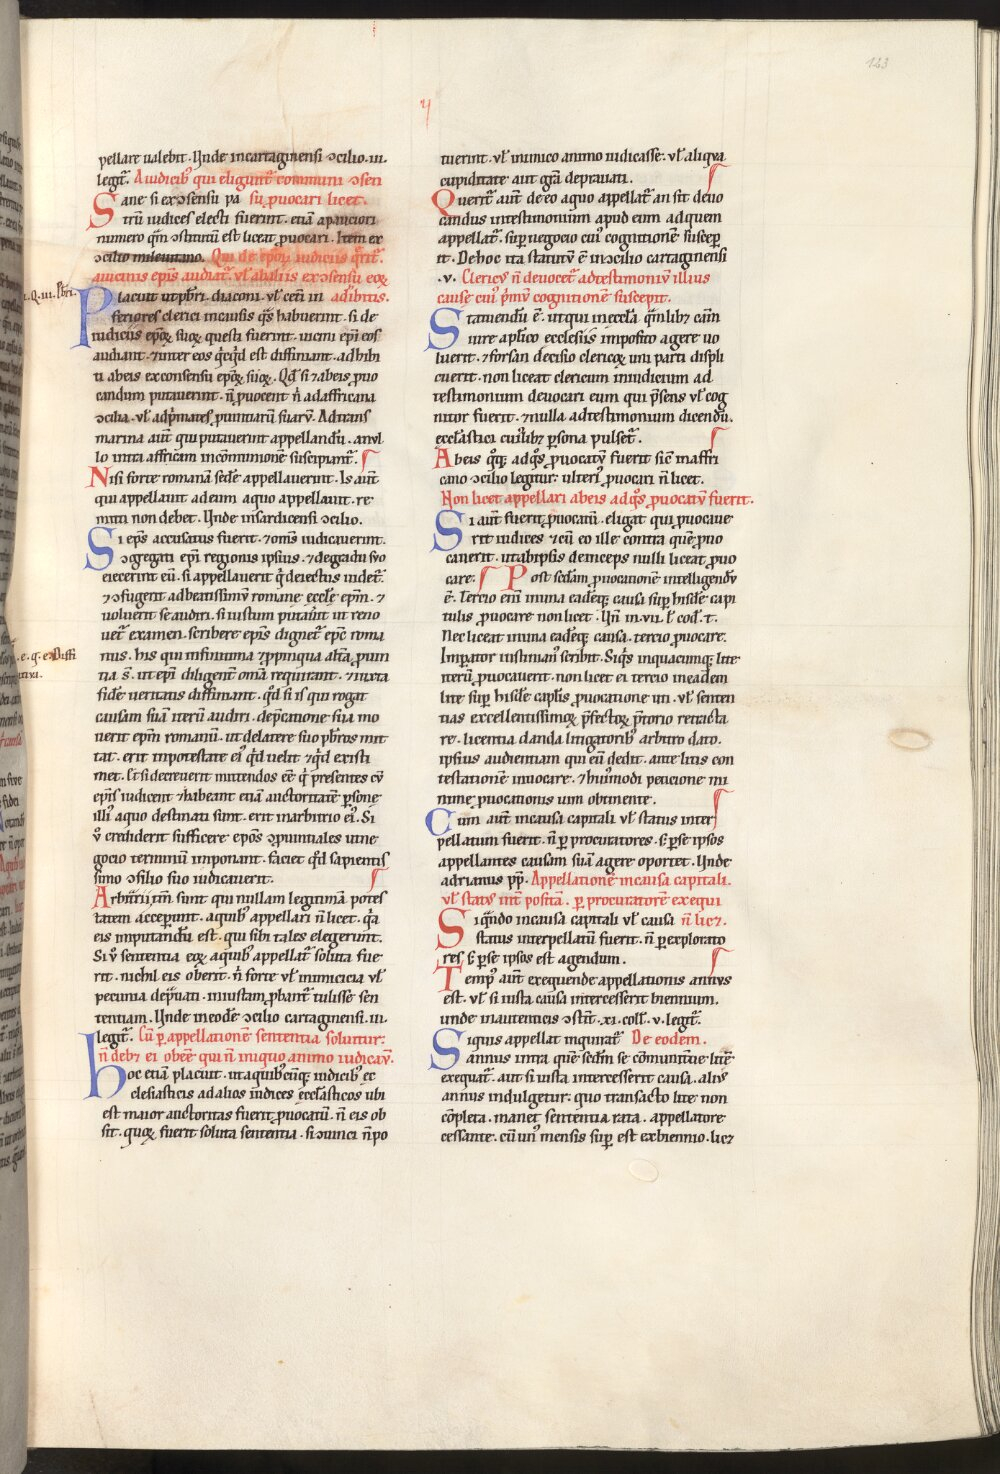 123
pellare ualebit. Unde incartaginensi ↄcilio .iii.
legit̃. A iudicib᷒ qui eligunt̃ communi ↄsen
Sane si exↄsensu pa su ꝓuocari licet.
trũ iudices electi fuerint. etiã apauciori
numero q̃m ↄstitutũ est liceat ꝓuocari. Item ex
ↄcilio mileuitano. Qui de ep̃oꝝ iudiciis q̃rit̃.
auicinis ep̃is audiat̃ vl̃ abaliis exↄsensu eoꝝ
Placuit ut p̃bri. diaconi. vl̃ ceti in adibitis.
feriores clerici incausis q̃s habuerint. si de
iudiciis ep̃oꝝ suoꝝ questi fuerint. uicini ep̃i eos
audiant. ⁊ inter eos q̃cq̃d est diffiniant. adhibi
ti abeis exconsensu ep̃oꝝ suoꝝ. Qd̃ si ⁊ abeis ꝓuo
candum putauerint. ñ ꝓuocent ñ adaffricana
ↄcilia. vl̃ adp̃mates ꝓuintiarũ suarũ. Ad trans
marina aut̃ qui putauerint appellandũ. anul
lo intra affricam incõmunionẽ suscipiant̃.
Nisi forte romanã sedẽ appellauerint. Is aut̃
qui appellauit ad eum aquo appellauit. re
mitti non debet. Unde insardicensi ↄcilio.
Si ep̃s accusatus fuerit. ⁊ om̃s iudicauerint.
ↄgregati ep̃i regionis ipsius. ⁊ degradu suo
eiecerint eũ. si appellauerit q̃ deiectus uidet̃.
⁊ ↄfugerit adbeatissimũ romane eccl̃e ep̃m. ⁊
voluerit se audiri. si iustum putauit ut reno
uet̃ examen. scribere ep̃is dignet̃ ep̃c roma
nus. his qui infinitima ⁊ ꝓpinqua alt̃a ꝓuin
tia s̃. ut ep̃i diligent̃ om̃ia requirant. ⁊ iuxta
fidẽ ueritatis diffiniant. q̃d si is qui rogat
causam suã iterũ audiri. dep̃catione sua mo
uerit ep̃m romanũ. ut delatere suo p̃bros mit
tat. erit inpotestate ei᷒ q̃d uelit ⁊ q̃d existi
met. Et si decreuerit mittendos eẽ q̃ presentes cũ
ep̃is iudicent ⁊ habeant etiã auctoritatẽ ꝑsone
illi᷒ aquo destinati sunt. erit inarbitrio ei᷒. Si
ṽ crediderit sufficere ep̃os ↄꝓuintiales ut ne
gocio terminũ imponant. faciet q̃d sapientis
simo ↄsilio suo iudicauerit.
Arbitrii tm̃ sunt qui nullam legitimã potes
tatem acceperunt. aquib᷒ appellari ñ licet. q̃a
eis imputandũ est. qui sibi tales elegerunt.
Si ṽ sententia eoꝝ aquib᷒ appellat̃ soluta fue
rit. nichil eis oberit. ñ forte vl̃ inimicicia vl̃
pecunia dep̃uati. iniustam ꝓbant̃ tulisse sen
tentiam. Unde ineodẽ ↄcilio cartaginensi .iii.
legit̃. Cũ ꝑ appellationẽ sententia soluitur:
ñ deb⁊ ei obeẽ qui ñ iniquo animo iudicaṽ.
Hoc etiã placuit. ut aquib᷒cũq; iudicib᷒ ec
clesiasticis ad alios iudices eccl̃asticos ubi
est maior auctoritas fuerit ꝓuocatũ. ñ eis ob
sit. quoꝝ fuerit soluta sententia. si ↄuinci ñ po
tuerint. vl̃ inimico animo iudicasse. vl̃ aliqua
cupiditate aut gr̃a deprauati.
Querit̃ aut̃ de eo aquo appellat̃ an sit deuo
candus intestimonium apud eum ad quem
appellat̃. suꝑ negocio cui᷒ cognitionẽ susceꝑ
it. De hoc ita statutũ ẽ inↄcilio cartaginensi
.v. Clericũ ñ deuocet̃ ad testimoniũ illius
cause cui᷒ p̃mũ cognitionẽ suscepit.
Statuendũ ẽ. ut qui ineccl̃a q̃mlib⁊ cam̃
iure ap̃lico ecclesiis imposito agere uo
luerit. ⁊ forsan decisio clericoꝝ uni parti displi
cuerit. non liceat clericum iniudicium ad
testimonium deuocari eum qui p̃sens vl̃ cog
nitor fuerit. ⁊ nulla ad testimonium dicendũ.
eccl̃astici cui᷒lib⁊ ꝑsona pulset̃.
Abeis q̃q; ad q̃s ꝓuocatũ fuerit sic̃ inaffri
cano ↄcilio legitur: ulteri᷒ ꝓuocari ñ licet.
Non licet appellari abeis ad q̃s ꝓuocatũ fuerit.
Si aut̃ fuerit ꝓuocatũ. eligat qui ꝓuocaue
rit iudices ⁊ cũ eo ille contra quẽ ꝓuo
cauerit. ut abipsis deinceps nulli liceat ꝓuo
care. Post sed̃am ꝓuocationẽ intelligendũ
ẽ. Tercio eni᷒ inuna eadẽq; causa suꝑ hisdẽ capi
tulis ꝓuocare non licet. Un̄ in .vii. l̃ cod̃. t.
Nec liceat inuna eadẽq; causa. tercio ꝓuocare.
Imꝑator iustinian᷒ scribit. Siq̃s inquacumq; lite
iterũ ꝓuocauerit. non licet ei tercio ineadem
lite suꝑ hisdẽ cap̃lis ꝓuocatione uti. vl̃ senten
tias excellentissimoꝝ p̃fectoꝝ p̃torio retracta
re. licentia danda litigatorib᷒ arbitro dato.
ipsius audientiam qui eũ dedit. ante litis con
testationẽ inuocare. ⁊ hui᷒modi peticione mi
nime ꝓuocationis uim obtinente.
Cum aut̃ incausa capitali vl̃ status inter
pellatum fuerit. ñ ꝑ procuratores. s̃ ꝑ se ipsos
appellantes causam suã agere oportet. Unde
adrianus pp̃. Appellationẽ incausa capitali.
vl̃ stat᷒ int̃ positã. ꝑ procuratorẽ exequi
Si q̃ndo incausa capitali vl̃ causa ñ lic⁊.
status interpellatũ fuerit. ñ ꝑ explorato
res. s̃ ꝑ se ipsos est agendum.
Temp᷒ aut̃ exequende appellationis annus
est. vl̃ si iusta causa intercesserit biennium.
unde inautenticis ↄstit̃ .xi. coll̃ .v. legit̃.
Siquis appellat inquirat̃ De eodem.
annus intra quẽ sed̃m se cõmunitue litẽ
exequat̃. aut si iusta intercesserit causa. ali᷒
annus indulgetur: quo transacto lite non
cõpleta. manet sententia rata. appellatore
cessante. cũ un᷒ mensis suꝑ est exbiennio. lic⁊